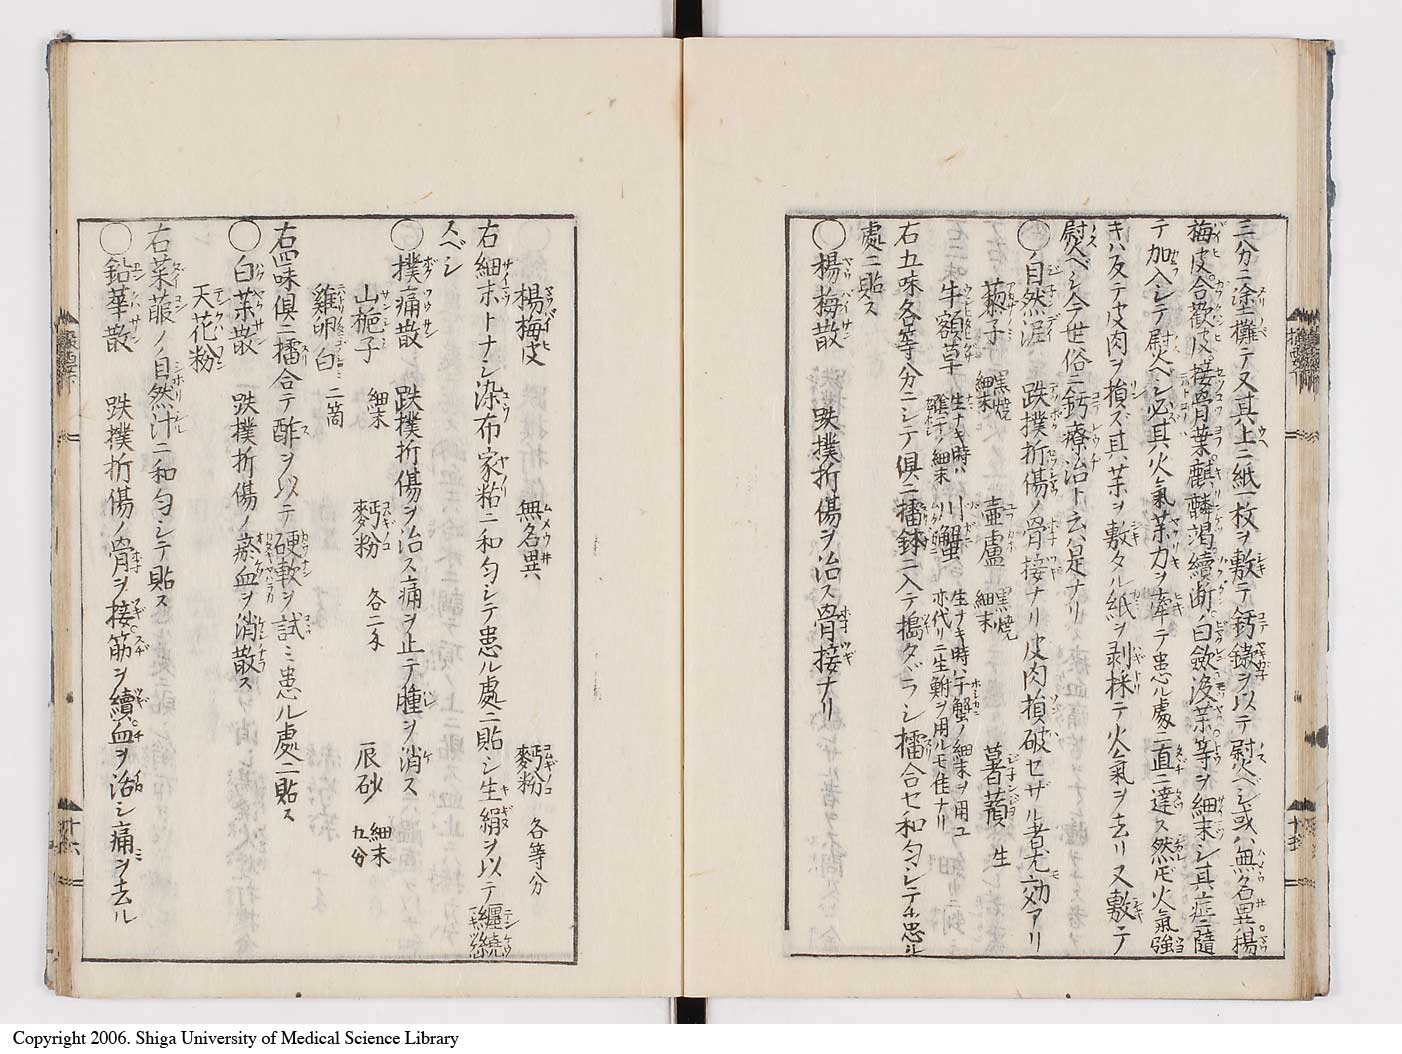 三分ニ塗攤テ又其上ニ紙一枚ヲ敷テ鈣鎊ヲ以テ慰ヘシ或ハ無名異楊
梅皮合歡皮接骨葉麒麟渇續断白歛没薬等ヲ細末シ其症ニ隨
テ加入シテ慰ヘシ必其火氣薬力ヲ牽テ患ル處ニ直ニ達ス然𪜈火氣強
キハ反テ皮肉ヲ損ズ其薬ヲ敷タル紙ヲ剥採テ火氣ヲ去リ又敷テ
慰ベシ今世俗ニ鈣療治ト云ハ是ナリ
〇自然泥 跌撲折傷ノ骨接ナリ皮肉損破セザル者尤効アリ
蒺子 黒焼細末 壷盧 黒焼細末 萆薢 生
牛額草 生ナキ時ハ陰干ノ細末 川蟹 生ナキ時ハ干蟹ノ細末ヲ用ユ亦代リニ生鮒ヲ用ルモ佳ナリ
右五味各等分ニシテ倶ニ擂鉢ニ入テ搗タヾラシ擂合セ和匀シテ患ル
處ニ貼ス
〇楊梅散 跌撲折傷ヲ治ス骨接ナリ
楊梅皮 無名異 麪粉 各等分
右細末トナシ染布家粘ニ和匀シテ患ル處ニ貼シ生絹ヲ以テ纒繞
スベシ
〇撲痛散 跌撲折傷ヲ治ス痛ヲ止テ腫ヲ消ス
山梔子 細末 麪粉 各二匁 辰砂 細末 五分
雞卵白 二箇
右四味倶ニ擂合テ酢ヲ以テ硬軟ヲ試ミ患ル處ニ貼ス
〇白薬散 跌撲折傷ノ瘀血ヲ消散ス
天花粉
右菜菔ノ自然汁ニ和匀シテ貼ス
〇鉛華散 跌撲折傷ノ骨ヲ接筋ヲ續血ヲ活シ痛ヲ去ル
十六
Copyright 2006. Shiga University of Medical Science Library